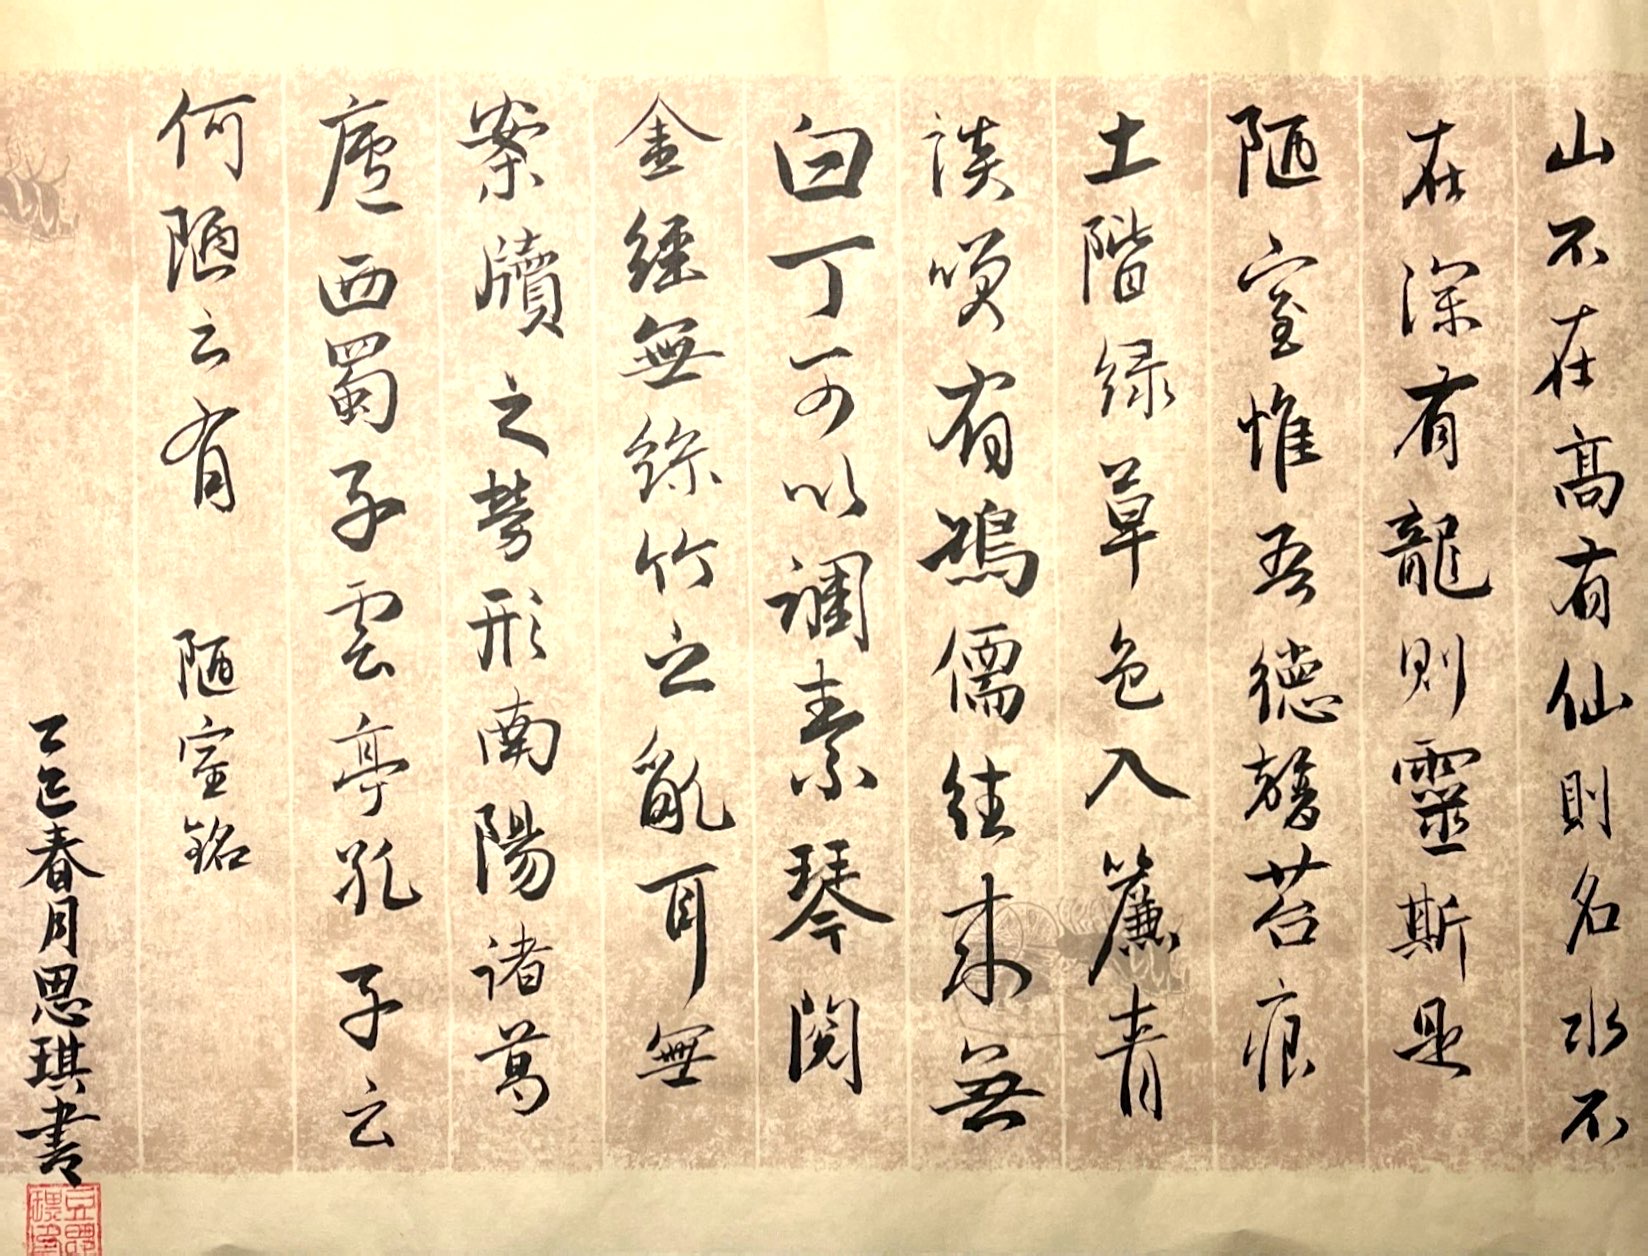 山不在高有仙則名水不
在深有龍則靈斯是
陋室惟吾德馨苔痕
土階绿草色入簾青
談笑有鴻儒往来無
白丁可以調素琴閱
金經無絲竹之亂耳無
案牘之勞形南陽諸葛
廬西蜀子雲亭孔子云
何陋云有 陋室銘
乙巳春月思琪書